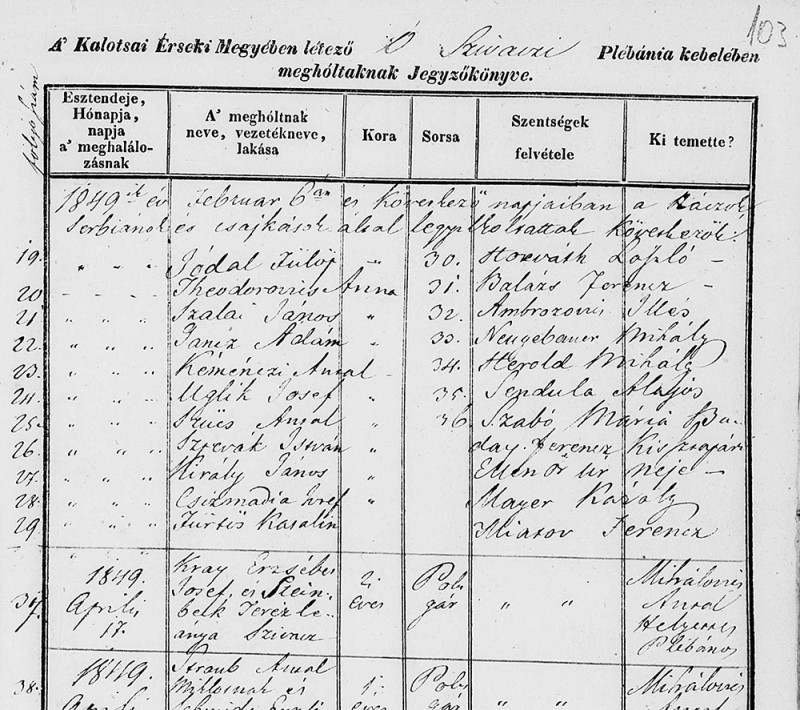 103
A' Kalotsai Érseki Megyében létező Ó Szivaczi Plébánia kebelében
meghóltaknak Jegyzőkönyve.
folyó szám
Esztendeje, Hónapja, napja a' meghalálozásnak
A' meghóltnak neve, vezetékneve, lakása
Kora
Sorsa
Szentségek felvétele
Ki temette?
1849ik év Februar 6án és következő napjaiban a Ráczok
Serbianok és csajkások által legyilkoltattak következők:
19. " " " Jódal Fülöp " 30. Horváth László –
20 – – – Theodorovics Anna 31. Balázs Ferencz –
21 " " " Szalai János " 32. Ambrozovics Illés
22. " " " Jancz Ádám " 33. Neugebauer Mihály
23. " " " Keménczi Antal – 34. Herold Mihály
24. " " " Uglik Josef " 35. Sendula Alajos
25. " " " Szücs Antal " 36 Szabó Mária Bu-
26. " " " István " day Ferencz
27. " " " Király János " Ellenőr ur neje –
28. " " " Csizmadia " Mayer Károly
29 " " " Katalin Ferencz
37. 1849. Aprilis 17.
Kray Erzsébet
Josef és Stein-
belk Teréz le-
anya Szivacz
2.
éves
Pol-
gár
" "
Mihálovics
Antal
Helyettes
Plébános
38. 1849. Aprilis
Straub Antal
Miklósnak és
1.
éves
Pol-
gár
" "
Mihálovics